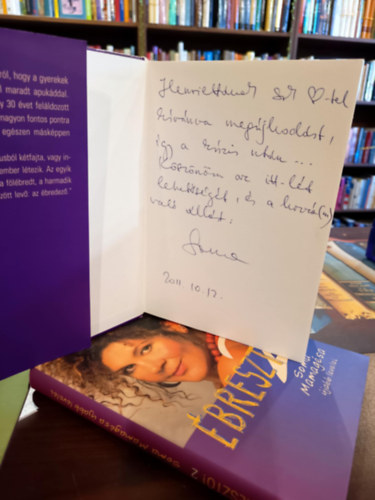 ról, hogy a gyerekek
maradt apukáddal.
y 30 évet feláldozott
magyon fontos pontra
egészen másképpen
usból kétfajta, vagy in-
ember létezik. Az egyik
a fölébredt, a harmadik
zött levő: az ébredező."
Henriettának Sok ♡-tel
kívánva megújhodást,
így a krízis után...
Köszönöm az itt-lét
lehetőségét, és a hozzá(m)
való állást.
Soma
2011. 10. 17.
ÉBRESZT
Soma
Mamagésa
Soma Mamagésa